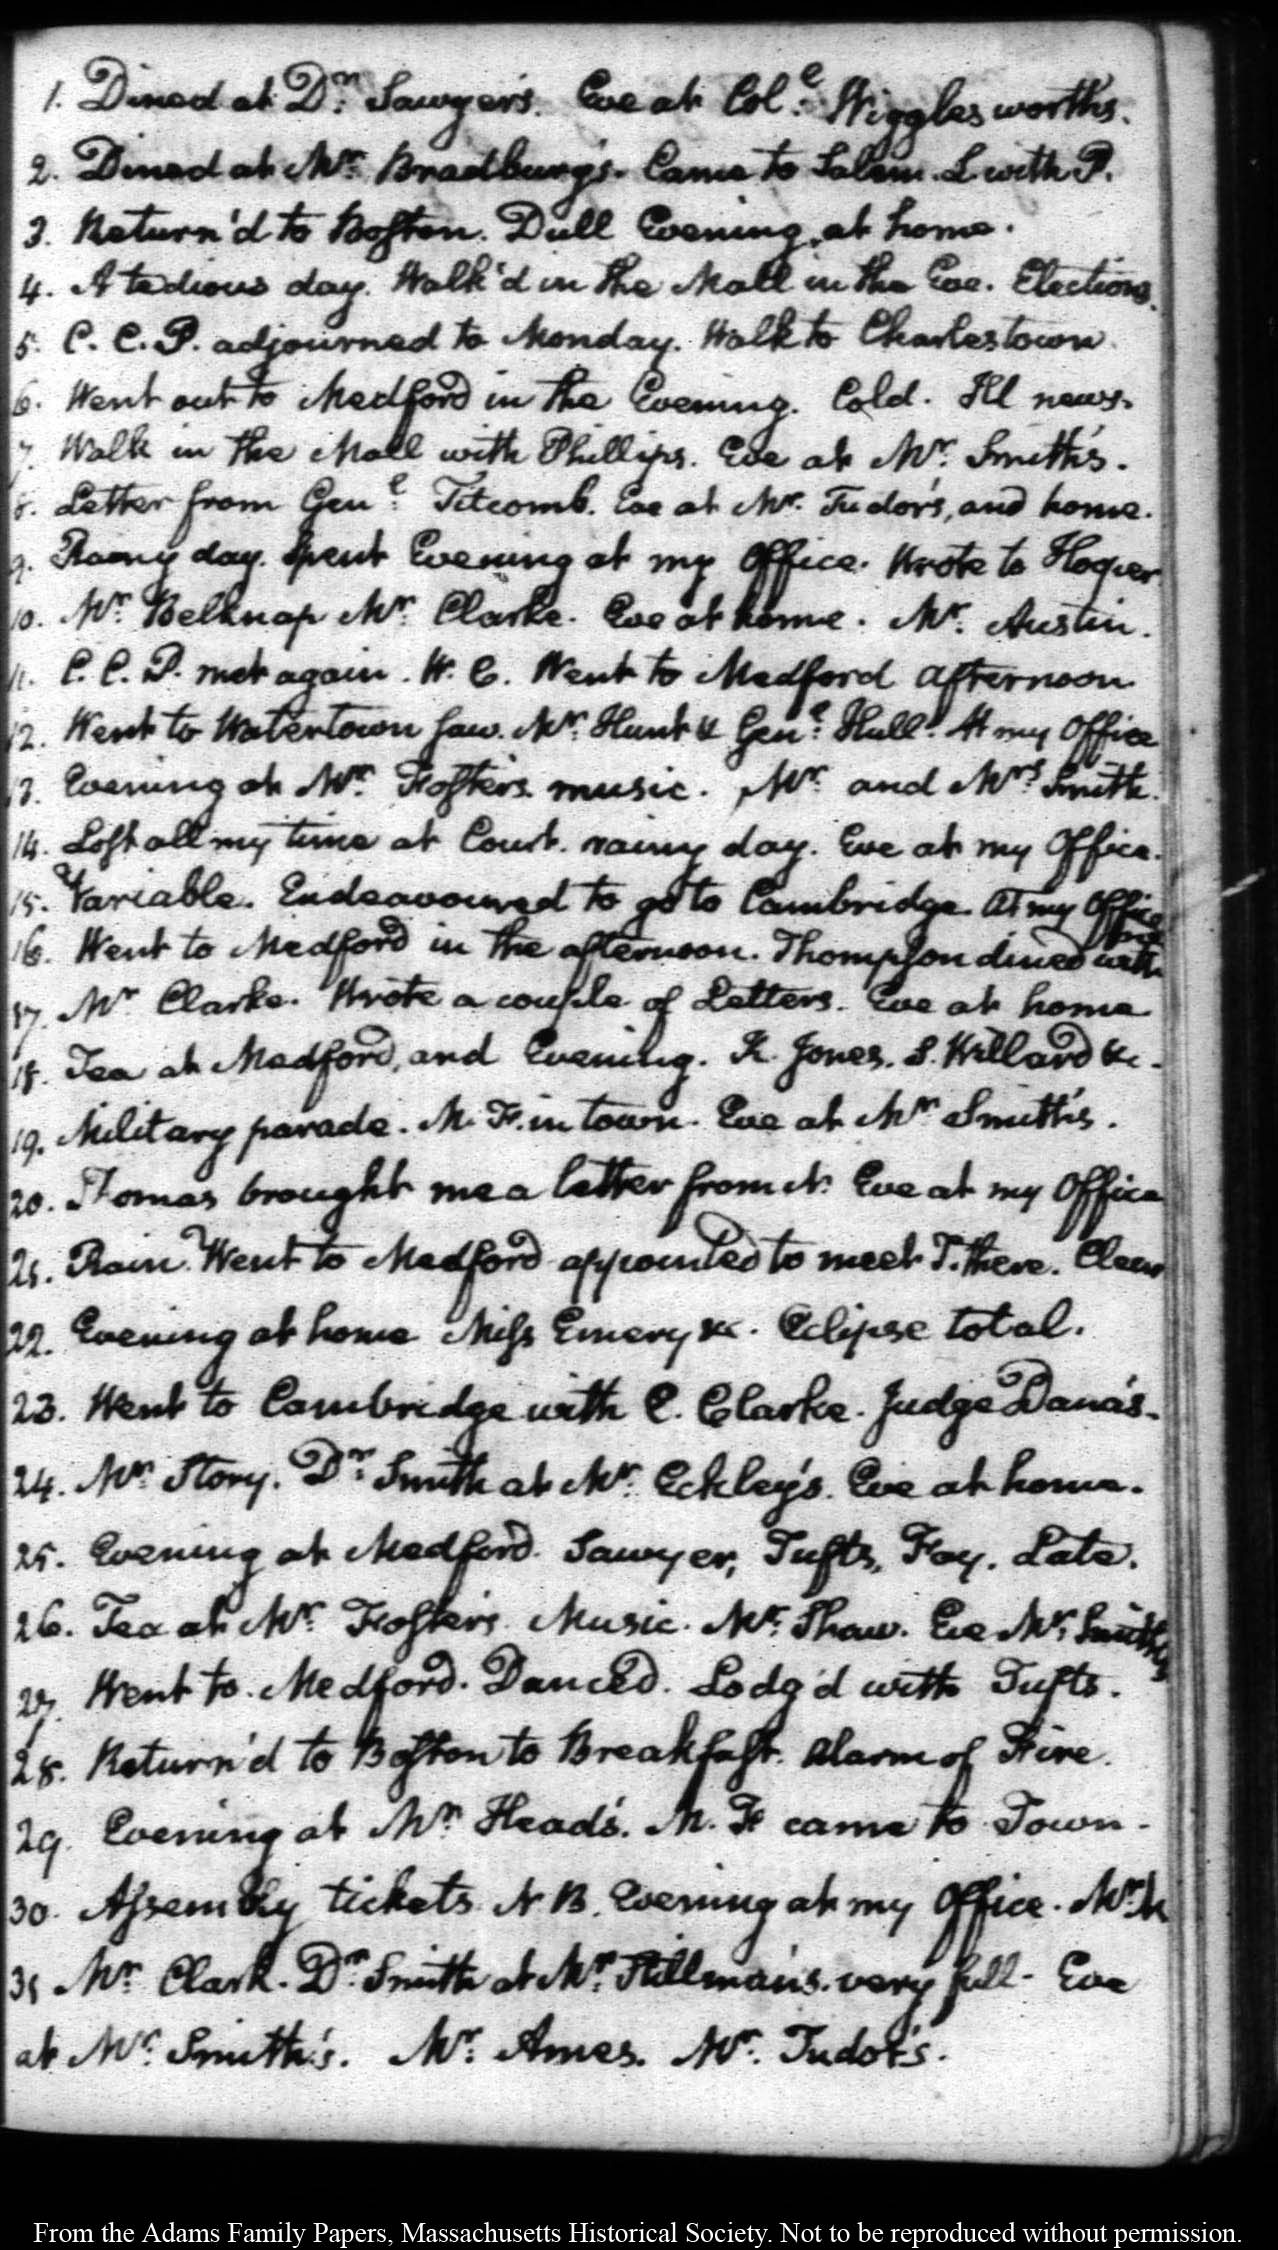 1. Dined at Dr. Sawyer's. Eve at Col.l Wigglesworth's.
2. Dined at Mr. Bradbury's. Came to Salem. L with P.
3. Return'd to Boston. Dull Evening, at home.
4. A tedious day. Walk'd in the Mall in the Eve. Elections.
5. C. C. P. adjourned to Monday. Walk to Charlestown.
6. Went out to Medford in the Evening. Cold. Ill news.
7. Walk in the Mall with Phillips. Eve at Mr. Smith's.
8. Letter from Gen.l Titcomb. Eve at Mr. Tudor's, and home.
9. Rainy day. Spent Evening at my Office. Wrote to
10. Mr. Belknap Mr. Clarke. Eve at home. Mr. Austin.
11. C. C. P. met again. W. C. Went to Medford afternoon
12. Went to Watertown saw. Mr. Hunt & Gen.l Hull. At my Office
13. Evening at Mr. Foster's. music. Mr. and Mrs. Smith.
14. Lost all my time at Court. rainy day. Eve at my Office.
15. Variable. Endeavoured to go to Cambridge. At my Office
16. Went to Medford in the afternoon. Thompson dined with me
17. Mr. Clarke. Wrote a couple of Letters. Eve at home
18. Tea at Medford, and Evening. K. Jones. S. Willard &c.
19. Military parade. M. F. in town. Eve at Mr. Smith's.
20. Thomas brought me a letter from Eve at my Office
21. Rain. Went to Medford appointed to meet T. there. Clear
22. Evening at home Miss Emery &c. Eclipse total.
23. Went to Cambridge with C. Clarke. Judge Dana's.
24. Mr. Story. Dr. Smith at Mr. Eckley's. Eve at home.
25. Evening at Medford. Sawyer, Tufts, Fay. Late.
26. Tea at Mr. Foster's. Music. Mr. Shaw. Eve Mr. Smith's
27. Went to Medford. Danced. Lodg'd with Tufts.
28. Return'd to Boston to Breakfast. Alarm of Fire.
29. Evening at Mr. Head's. M. F came to Town.
30. Assembly tickets N B. Evening at my Office.
31 Mr. Clark. Dr. Smith at Mr. Stillman's. very full. Eve
at Mr. Smith's. Mr. Ames. Mr. Tudor's.
From the Adams Family Papers, Massachusetts Historical Society. Not to be reproduced without permission.